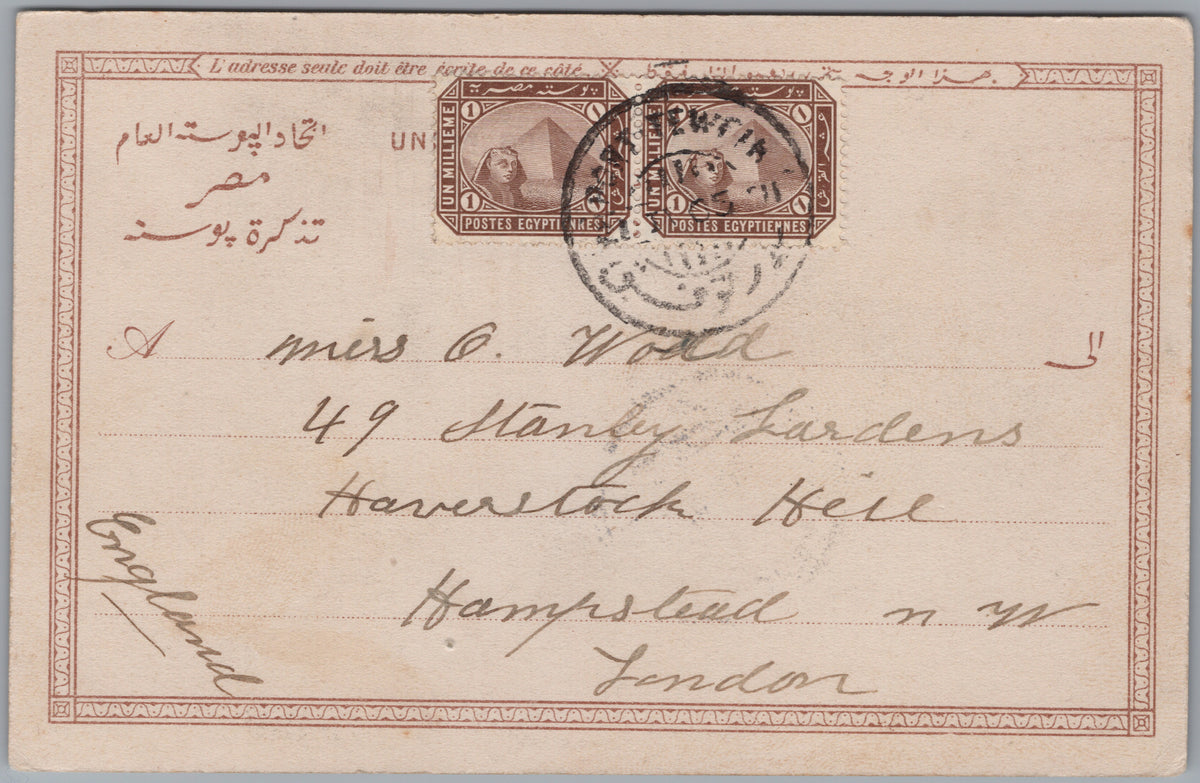 L'adresse seule doit être écrite de ce côté. هذا الوجه
اتحاد البوسته العام
مصر
تذكرة بوسته
UN
بوسته مصريه
UN MILLIEME
1 1
1 1
POSTES EGYPTIENNES
UN MILLIEME
1 1
1 1
POSTES EGYPTIENNES
PORT-TEWFIK
A Miss O. Wodd الى
49 Stanley Gardens
Haverstock Hill
Hampstead N W
London
England